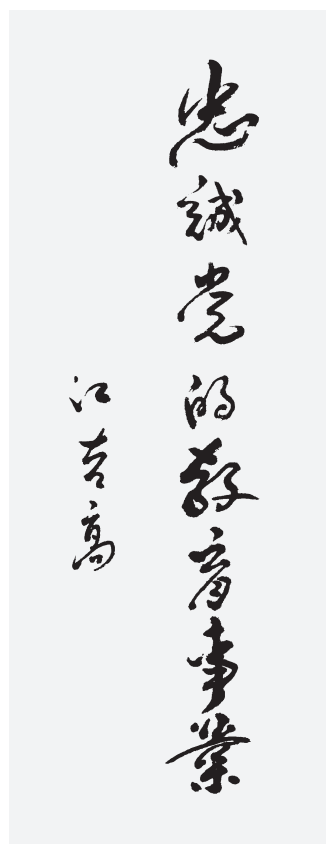 忠誠党的教育事業
江吉高